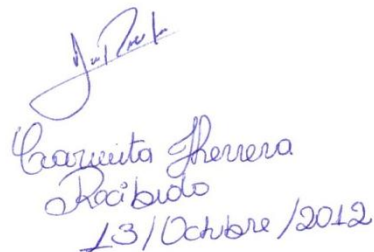 Carmita Herrera
Recibido
13/Octubre/2012